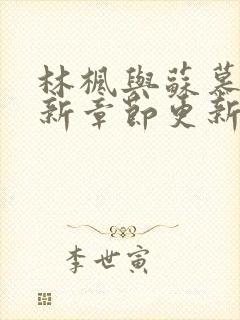 林楓與蘇慕
新章節更新
李世寅